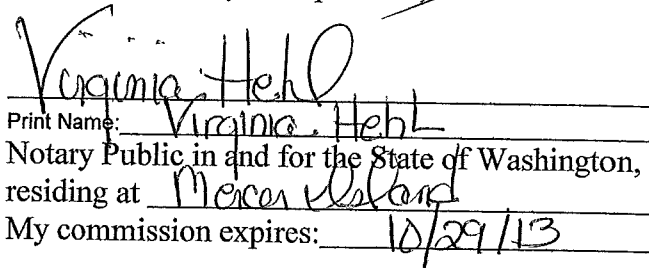 Virginia Hehl
Print Name: Virginia Hehl
Notary Public in and for the State of Washington,
residing at Mercer Island
My commission expires: 10/29/13